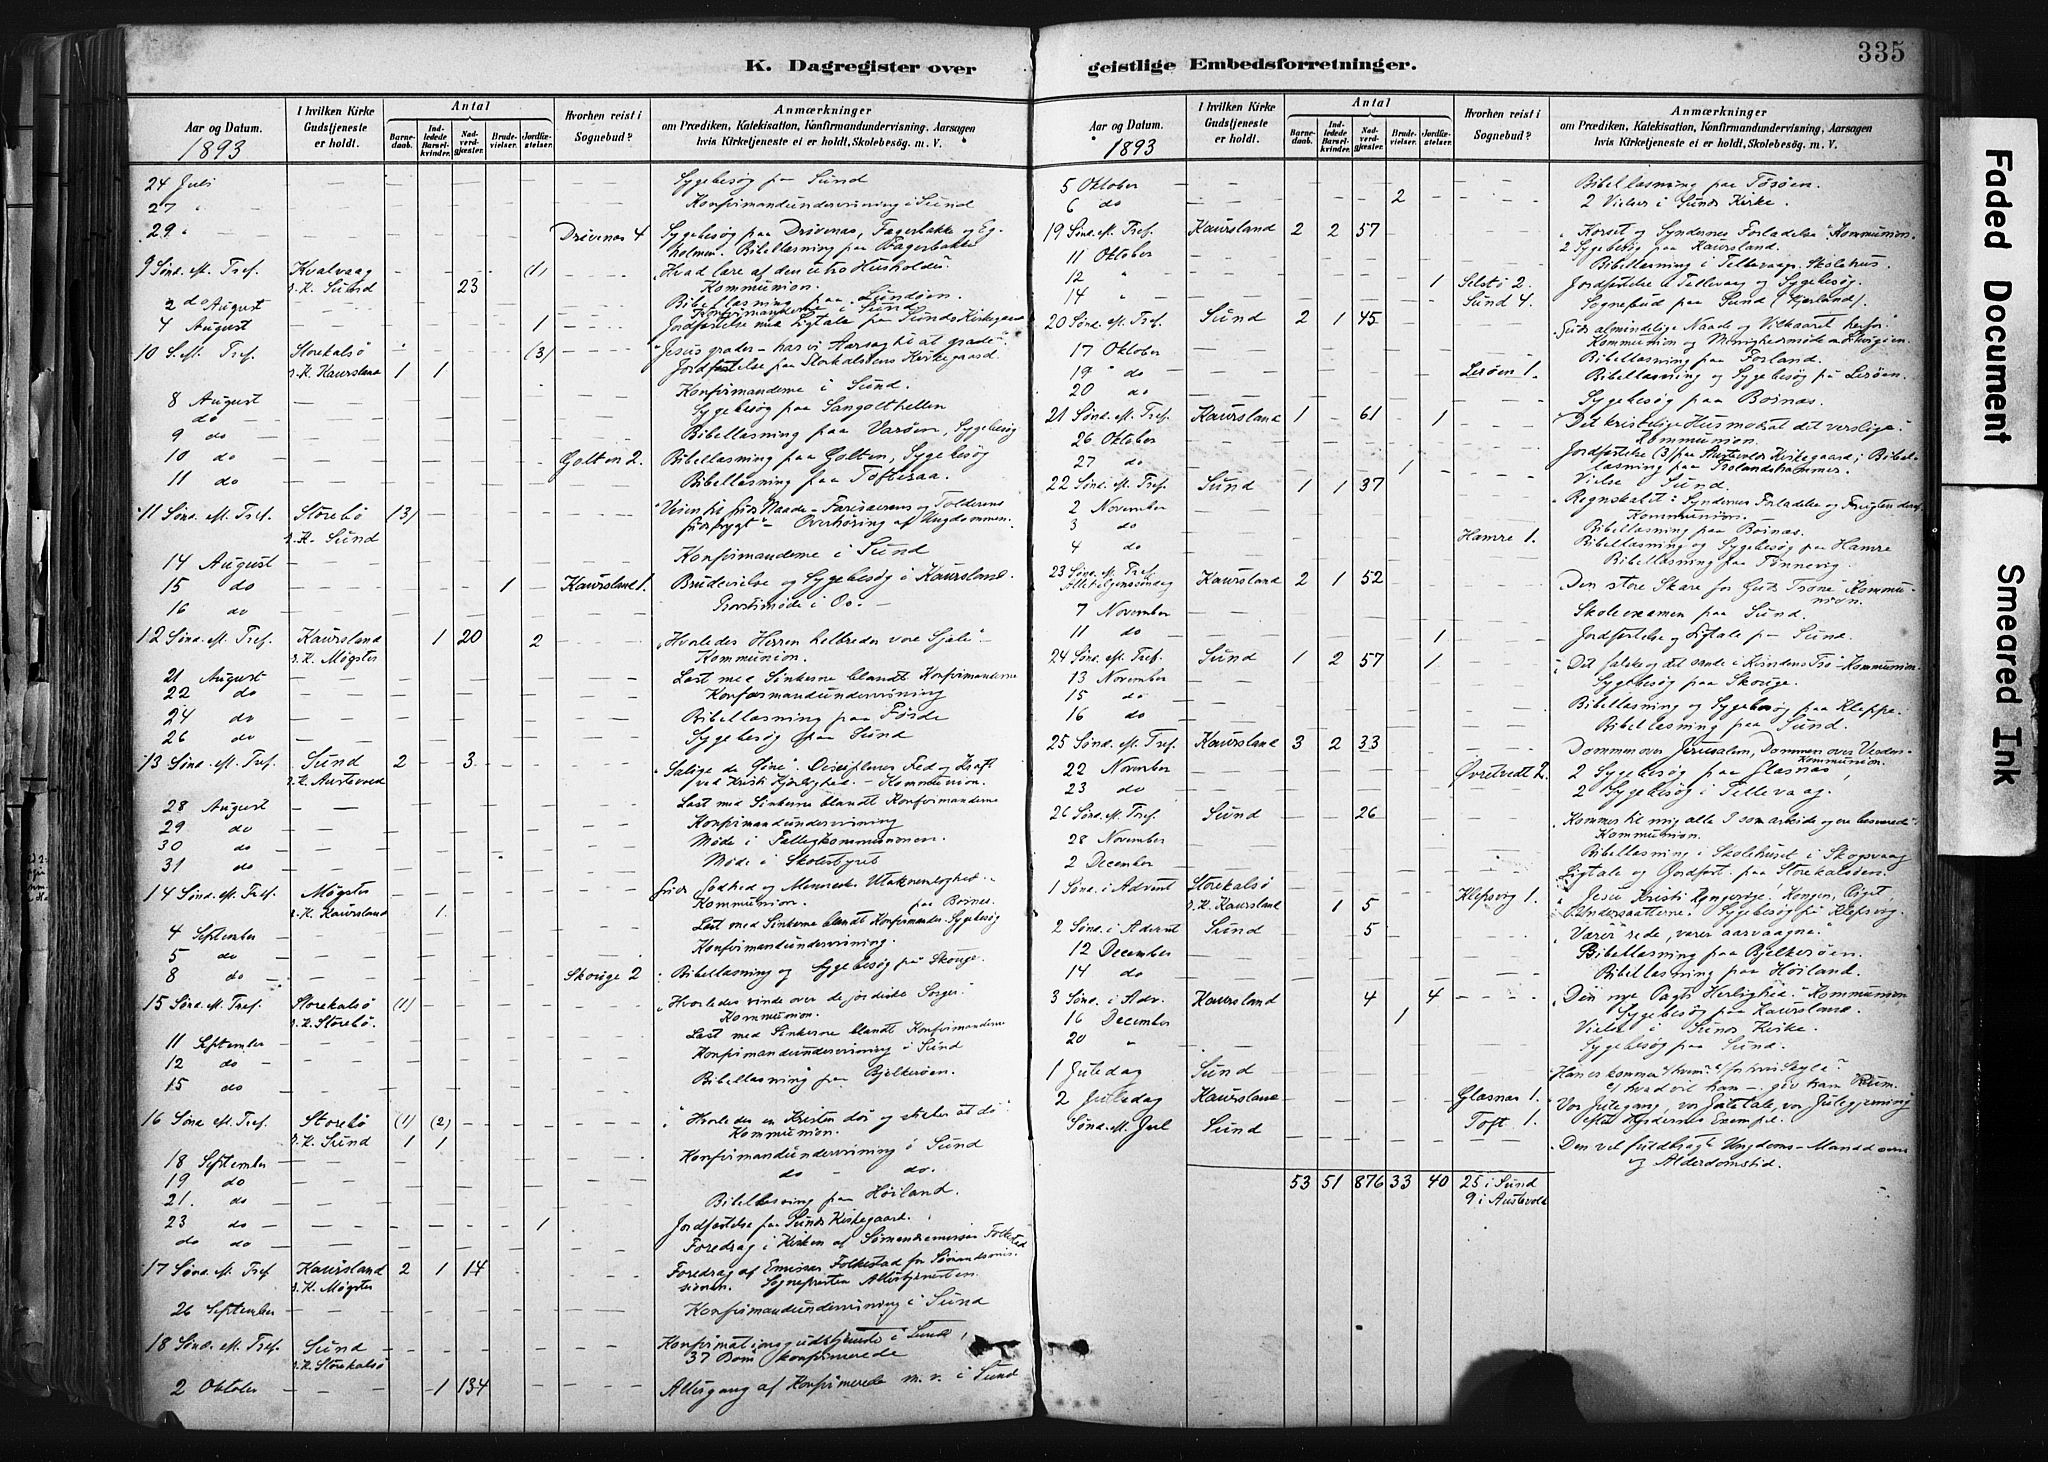 K. Dagregister over geistlige Embedsforretninger. 335
Aar og Datum. 1893
I hvilken Kirke Gudstjeneste er holdt.
Antal
Barnedaab. Indledede Barselkvinder. Nadverdgjæster. Brudevielser. Jordfæstelser.
Hvorhen reist i Sognebud?
Anmærkninger
om Prædiken, Katekisation, Konfirmandundervisning, Aarsagen
hvis Kirketjeneste ei er holdt, Skolebesøg. m. V.
24 Juli — Sygebesøg paa Sund
27 " — Konfirmandundervisning i Sund
29 " — Drivenas 4 Sygebesøg paa Drivenas, Fagerbakke og Eg-
holmen. Bibellæsning paa Fagerbakke
9 Sønd. M. Tref. Kvalvaag (1) "Hvad lære af den utro Husholder"
r. K. Sund 23 Kommunion.
2 do August Bibellæsning paa Lundøen.
Konfirmanderne i Sund
4 August 1 Jordfæstelse med Ligtale paa Sunds Kirkegaard
10 S. M. Tref. Storekalsø (3) "Jesus græder – har vi Aarsag til at græde".
r. K. Kaursland 1 1 Jordfæstelse paa Storkalsøens Kirkegaard
Konfirmanderne i Sund.
8 August Sygebesøg paa Sangolthellen
9 do Bibellæsning paa Varøen, Sygebesøg
10 do Golten 2. Bibellæsning paa Golten, Sygebesøg
11 do Bibellæsning paa Toftesaa.
11 Sønd. M. Tref. Storebø (3) "Veien til Guds Naade – Farisæerens og Tolderens
r. K. Sund Gudsfrygt" – Overhøring af Ungdommen.
14 August Konfirmanderne i Sund
15 do 1 Kaursland 1. Brudevielse og Sygebesøg i Kaursland.
16 do Provstimøde i Os. –
12 Sønd. M. Tref. Kaursland 1 20 2 "Hvorledes Herren helbreder vore Sjæle"
r. K. Møgster Kommunion.
21 August Læst med Sinkerne blandt Konfirmanderne
22 do Konfirmandundervisning
24 do Bibellæsning paa Førde
26 do Sygebesøg paa Sund
13 Sønd. M. Tref. Sund 2 3 "Salige de Øine". Disciplenes Fred og Kraft
r. K. Austevold ved Kristi Kjærlighed – Kommunion.
28 August Læst med Sinkerne blandt Konfirmanderne
29 do Konfirmandundervisning
30 do Møde i Fattigkommissionen.
31 do Møde i Skolestyret
14 Sønd. M. Tref. Møgster Guds Godhed og Menneskets Utaknemlighed.
r. K. Kaursland 1. Kommunion. paa Boinæs.
4 September Læst med Sinkerne blandt Konfirmander. Sygebesøg
5 do Konfirmandundervisning.
8 do Skouge 2 Bibellæsning og Sygebesøg på Skouge.
15 Sønd. M. Tref. Storekalsø (1) "Hvorledes vinde over de jordiske Sorger"
r. K. Storebø. Kommunion.
11 September Læst med Sinkerne blandt Konfirmanderne
12 do Konfirmandundervisning i Sund
15 do Bibellæsning paa Bjelkerøen.
16 Sønd M. Tref. Storebø (1) (2) "Hvorledes en Kristen dør og skikker at dø"
r. K. Sund 1 1 Kommunion.
18 September Konfirmandundervisning i Sund
19 do do do.
21. do Bibellæsning paa Høiland.
23 do 1 Jordfæstelse paa Sunds Kirkegaard.
do do Foredrag i Kirken af Sømandsemissær Folkestad
17 Sønd. M. Tref. Kaursland 2 1 14 Foredrag af Emissær Folkestad for Sømandsmis-
r. K. Møgster sionen. Sognepresten Altertjenesten
26 September Konfirmandundervisning i Sund
18 Sønd. M. Tref. Sund Konfirmationsgudstjeneste i Sund
r. K. Storekalsø 37 Børn konfirmerede
2 Oktober 1 134 Altergang af Konfirmerede m. v. i Sund
Aar og Datum. 1893
I hvilken Kirke Gudstjeneste er holdt.
Antal
Barnedaab. Indledede Barselkvinder. Nadverdgjæster. Brudevielser. Jordfæstelser.
Hvorhen reist i Sognebud?
Anmærkninger
om Prædiken, Katekisation, Konfirmandundervisning, Aarsagen
hvis Kirketjeneste ei er holdt, Skolebesøg. m. V.
5 Oktober Bibellæsning paa Tøsøen.
6 do 2 2 Vielser i Sunds Kirke.
19 Sønd. M. Tref. Kaursland 2 2 57 "Korset og Syndernes Forladelse" Kommunion.
11 Oktober 2 Sygebesøg paa Kaursland.
12 " Bibellæsning i Tellevaags Skolehus.
1 Selstø 2. Jordfæstelse i Tellevaag og Sygebesøg.
14 " Sund 4. Sognebud paa Sund
20 Sønd. M. Tref. Sund 2 1 45 Guds almindelige Naade og Vilkaaret herfor
Kommunion og Menighedsmøde
17 Oktober Bibellæsning paa Forland.
19 do Lerøen 1. Bibellæsning og Sygebesøg på Lerøen.
20 do Sygebesøg paa Boinæs.
21 Sønd. M. Tref. Kaursland 1 61 1 Det kristelige Hus modsat det verslige.
26 Oktober Kommunion.
Jordfæstelse (3) paa Austevolds Kirkegaard; Bibel-
27 do 1 læsning paa Trolandshammer.
22 Sønd. M. Tref. Sund 1 1 37 Vielse i Sund.
2 November "Regnskabet: Syndernes Forladelse og Frugten deraf
Kommunion.
3 do Bibellæsning paa Boinæs.
4 do Hamre 1. Bibellæsning og Sygebesøg paa Hamre
Bibellæsning paa Tønnevig.
23 Sønd. M. Tref.
Allehelgenssøndag Kaursland 2 1 52 Den store Skare for Guds Trone. Kommu-
nion.
7 November Skoleexamen paa Sund.
11 do 1 Jordfæstelse og Ligtale p– Sund.
24 Sønd. M. Tref. Sund 1 2 57 1 "Det falske og det sande i Kvindens Tro" Kommunion
13 November Sygebesøg paa Skouge.
15 do Bibellæsning og Sygebesøg paa Kleppe.
16 do Bibellæsning paa Sund.
25 Sønd. M. Tref. Kaursland 3 2 33 Dommen over Jerusalem, Dommen over Verden
Kommunion.
22 November Øvretvedt 2. 2 Sygebesøg paa Glasnæs,
23 do 2 Sygebesøg i Tellevaag.
26 Sønd. M. Tref. Sund 26 "Kommer til mig alle I som arbeide og ere besværede"
28 November Kommunion.
2 December Bibellæsning i Skolehuset i Skogsvaag
Ligtale og Jordfæst. paa Storekalsøen.
1 Sønd. i Advent Storekalsø
r. K. Kaursland 1 5 Klepsvig 1. "Jesu Kristi Kongerige, Kongen, Riget,
Undersaatterne. Sygebesøg på Klepsvig.
2 Sønd. i Advent Sund 5 "Værer rede, værer aarvaagne."
12 December Bibellæsning paa Bjelkerøen.
14 do Bibellæsning paa Høiland.
3 Sønd. i Adv. Kaursland 4 4 "Den nye Pagts Herlighed." Kommunion
Sygebesøg paa Kaursland.
16 December 1 Vielse i Sunds Kirke.
20 " Sygebesøg paa Sund.
1 Juledag Sund Han er kommen
hvad vil han – giv ham Rum.
2 Juledag Kaursland Glasnæs 1. Vor Julegang, vor Juletale, vor Julegjerning
Toft 1. efter Hyrdernes Exempel.
Sønd. M. Jul Sund "Den vel Ungdoms – Manddoms
og Alderdomstid.
53 51 876 33 40 25 i Sund
9 i Austevold
Faded Document
Smeared Ink